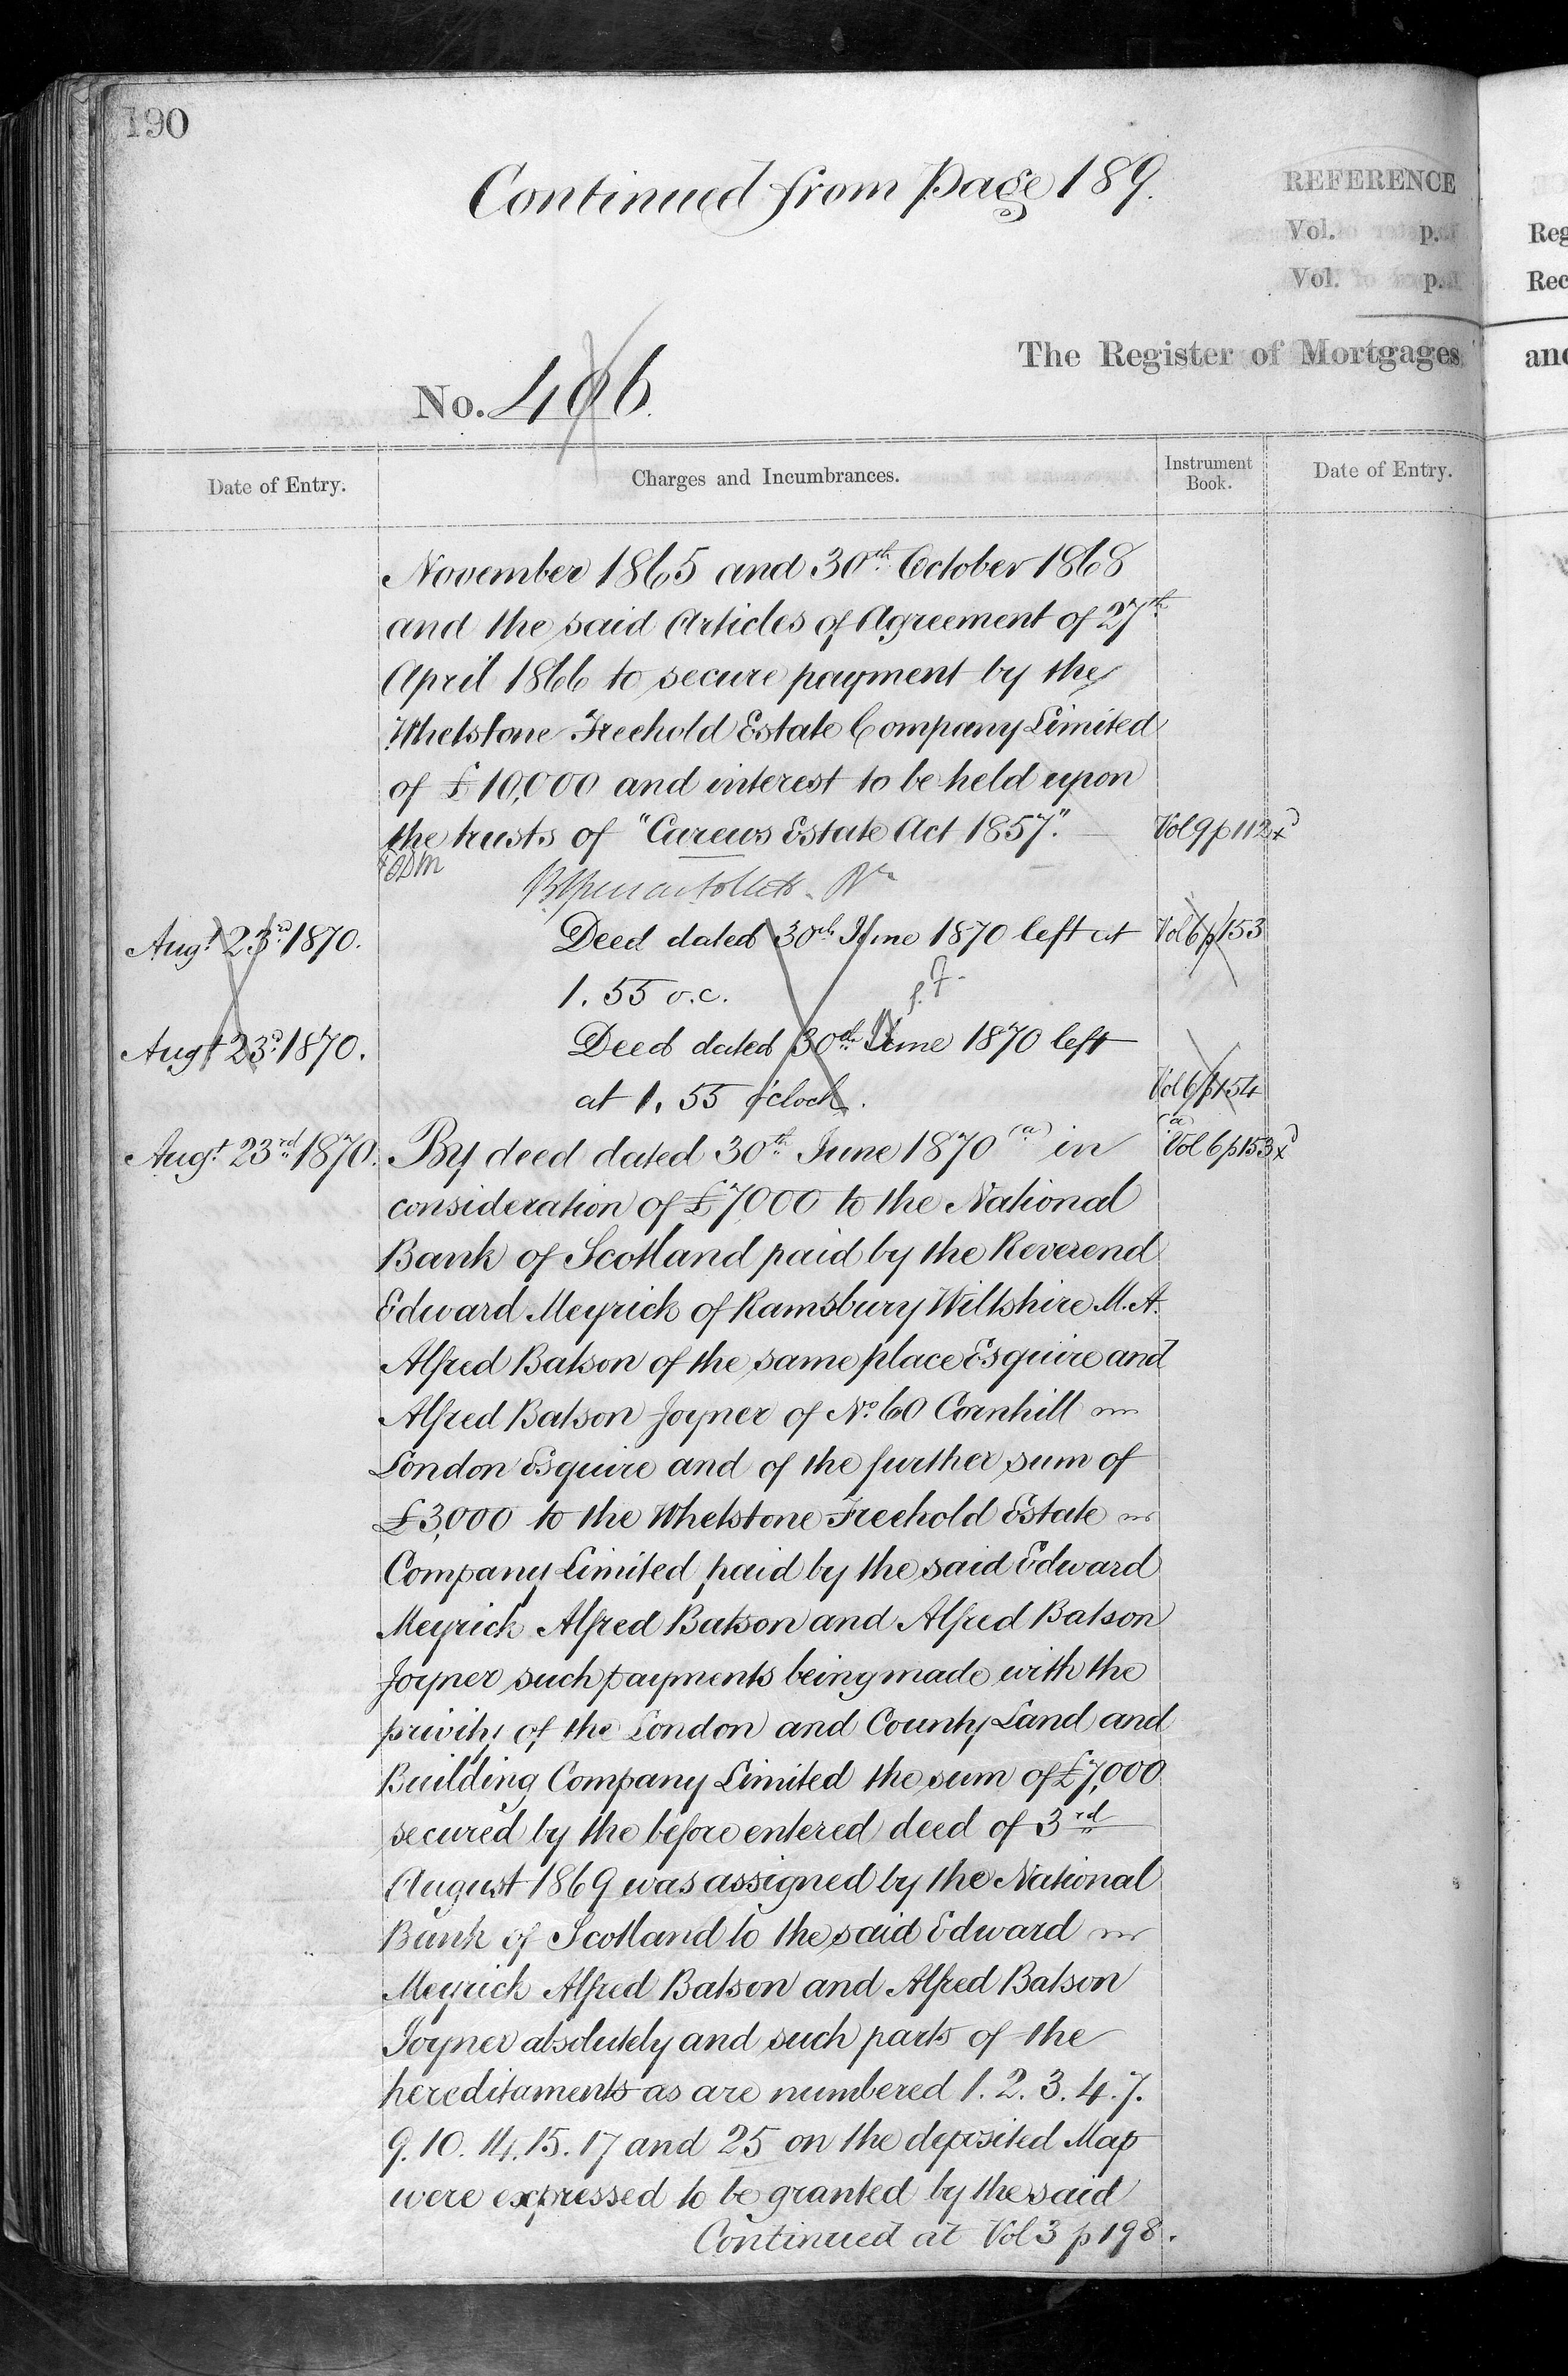 190
Continued from page 189.
REFERENCE
Vol. p.
Vol. p.
Reg
Rec
The Register of Mortgages
and
No. 406.
Date of Entry.
Charges and Incumbrances.
Instrument Book.
Date of Entry.
November 1865 and 30th October 1868
and the said Articles of Agreement of 27th
April 1866 to secure payment by the
Whetstone Freehold Estate Company Limited
of £10,000 and interest to be held upon
the trusts of "Carews Estate Act 1857." Vol 9 p 112 x
Augt 23rd 1870. Deed dated 30th June 1870 left at Vol 6 p 153
1.55 o.c.
Augt 23rd 1870. Deed dated 30th June 1870 left
at 1.55 o'clock. Vol 6 p 154
Augt 23rd 1870. By deed dated 30th June 1870 (a) in (a) Vol 6 p 153 x
consideration of £7000 to the National
Bank of Scotland paid by the Reverend
Edward Meyrick of Ramsbury Wiltshire M.A.
Alfred Batson of the same place Esquire and
Alfred Batson Joyner of No. 60 Cornhill
London Esquire and of the further sum of
£3,000 to the Whetstone Freehold Estate
Company Limited paid by the said Edward
Meyrick Alfred Batson and Alfred Batson
Joyner such payments being made with the
privity of the London and County Land and
Building Company Limited the sum of £7,000
secured by the before entered deed of 3rd
August 1869 was assigned by the National
Bank of Scotland to the said Edward
Meyrick Alfred Batson and Alfred Batson
Joyner absolutely and such parts of the
hereditaments as are numbered 1. 2. 3. 4. 7.
9. 10. 14. 15. 17 and 25 on the deposited Map
were expressed to be granted by the said
Continued at Vol 3 p 198.